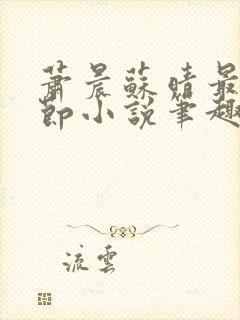 蕭晨蘇晴最
節小說筆趣
流雲